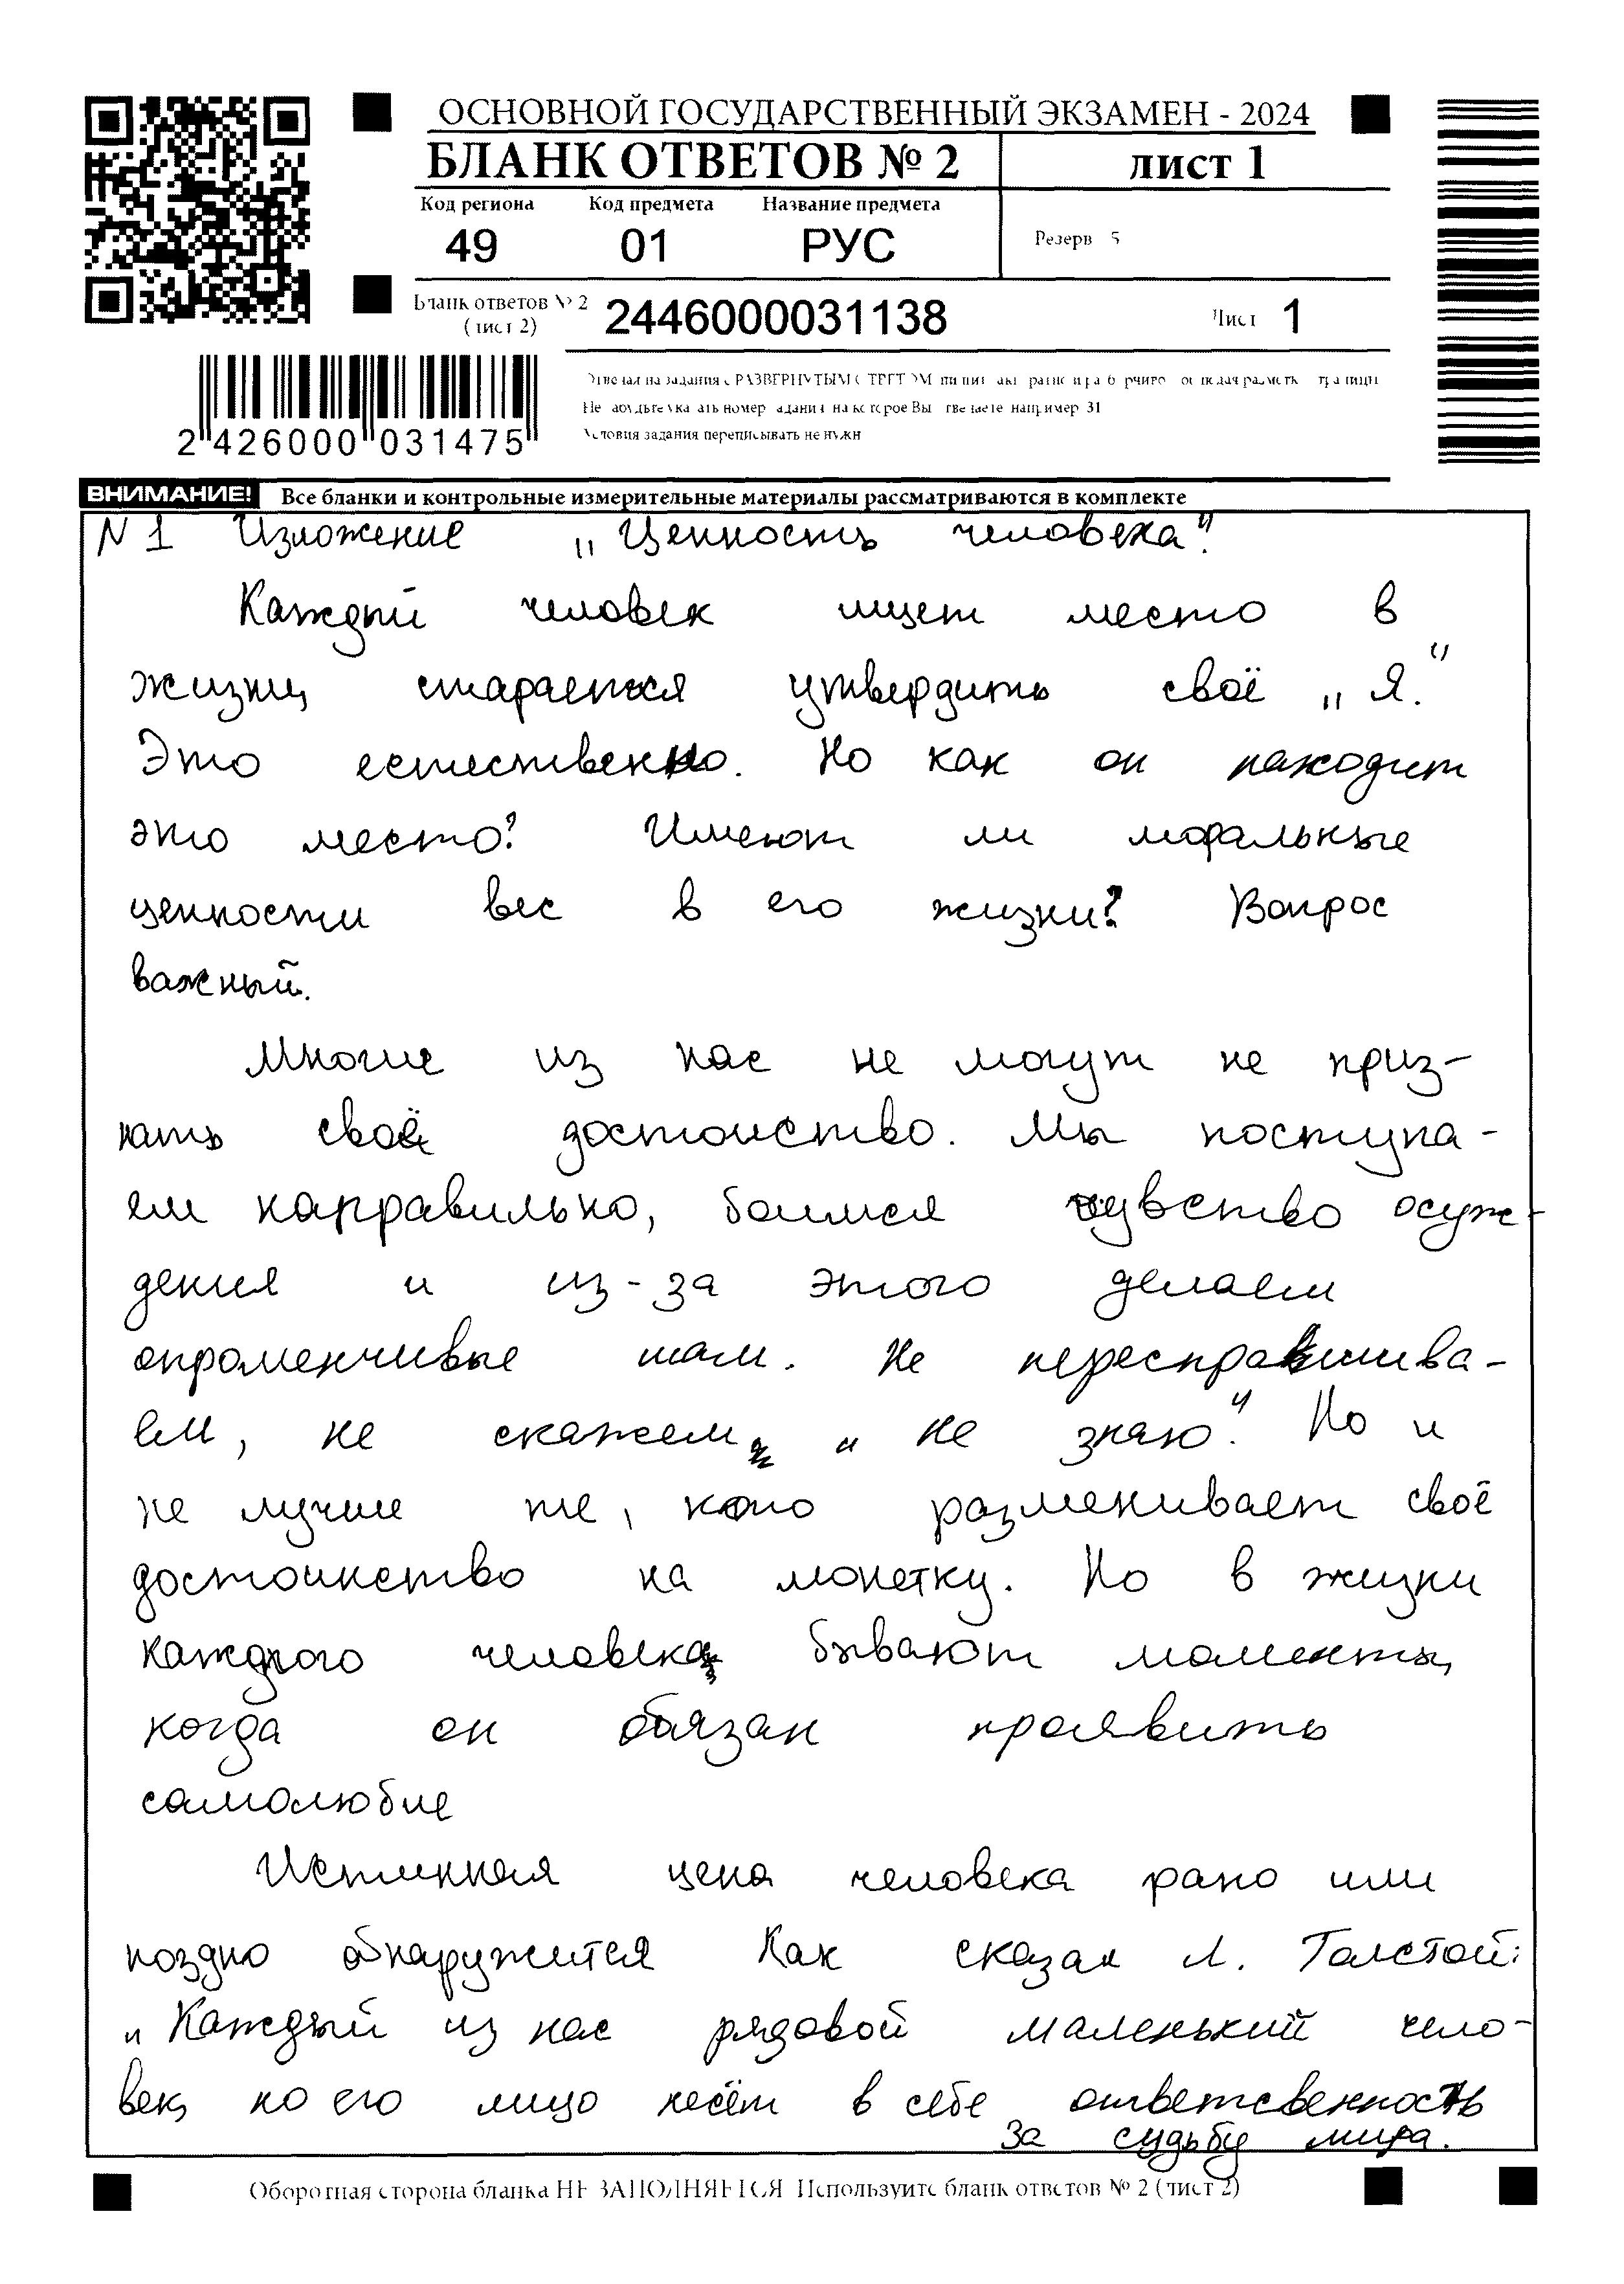 ОСНОВНОЙ ГОСУДАРСТВЕННЫЙ ЭКЗАМЕН - 2024
БЛАНК ОТВЕТОВ № 2
лист 1
Код региона Код предмета Название предмета
49 01 РУС
Резерв 5
Бланк ответов № 2
(лист 2)
2446000031138
Лист 1
2 426000 031475
Условия задания переписывать не нужн
ВНИМАНИЕ! Все бланки и контрольные измерительные материалы рассматриваются в комплекте
N 1 Изложение „Ценность человека".
Каждый человек ищет место в
жизни, старается утвердить своё „Я."
Это естественно. Но как он находит
это место? Имеют ли моральные
ценности вес в его жизни? Вопрос
важный.
Многие из нас не могут не приз-
нать своё достоиство. Мы поступа-
ем направильно, боимся чувство осуж-
дения и из-за этого делаем
опроменчивые шаги. Не переспрашива-
ем, не скажем „не знаю". Но и
не лучше те, кто разменивает своё
достоинство на монетку. Но в жизни
каждого человека бывают моменты,
когда он обязан проявить
самолюбие
Истинная цена человека рано или
поздно обнаружится Как сказал Л. Толстой:
„Каждый из нас рядовой маленький чело-
век, но его лицо несёт в себе ответсвенность
за судьбу мира.
Оборотная сторона бланка НЕ ЗАПОЛНЯЕТСЯ Используите бланк ответов № 2 (лист 2)